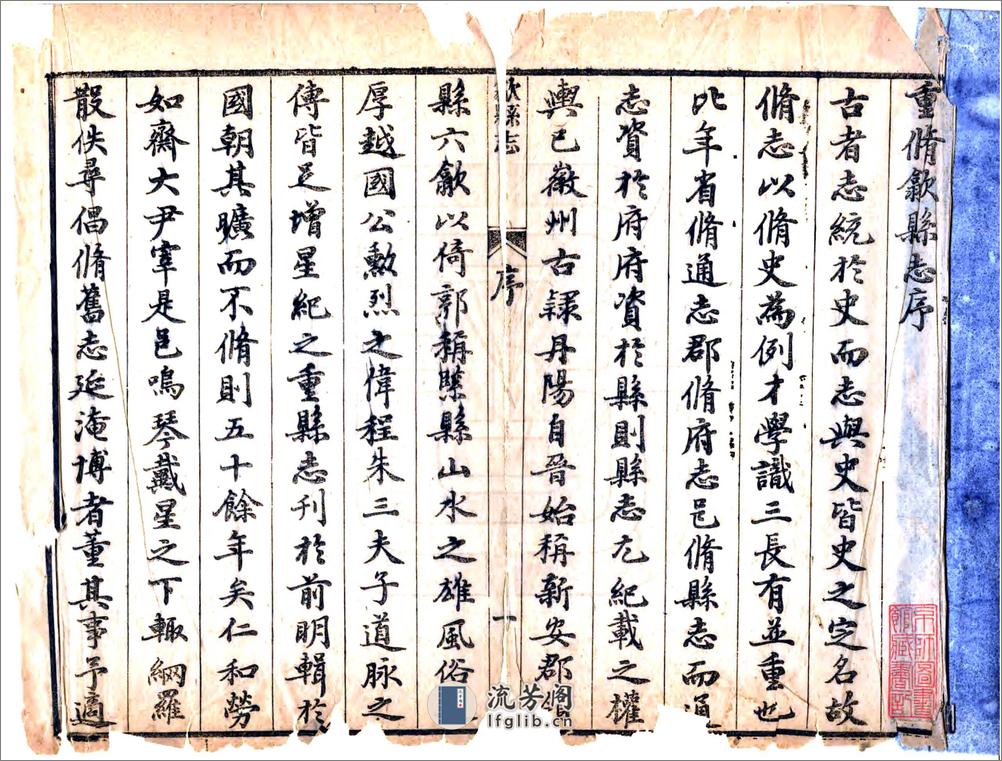 重脩歙縣志序
古者志統於史而志與史皆史之定名故
脩志以脩史為例才學識三長有並重也
比年省脩通志郡脩府志邑脩縣志而通
志資於府府資於縣則縣志尤紀載之權
輿已徽州古隸丹陽自晉始稱新安郡領
歙縣志
序
一
縣六歙以倚郭稱緊縣山水之雄風俗
厚越國公勳烈之偉程朱三夫子道脉之
傳皆足增星紀之重縣志刊於前明輯於
國朝其曠而不脩則五十餘年矣仁和勞
如齋大尹宰是邑鳴琴戴星之下輙網羅
散佚尋倡脩舊志延淹博者董其事予適
流芳閣
lfglib.cn